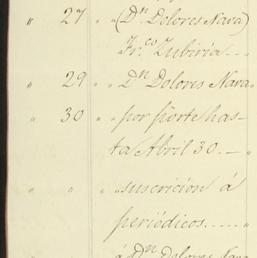 " 27 " " (Dn. Dolores Nava)
Fr.co Zubiria . . .
" 29 " " Dn. Dolores Nava
" 30 " " por porte has-
ta Abril 30. — "
" " " " suscrición á
periódicos. . . . . "
á Dn. Dolores Nava